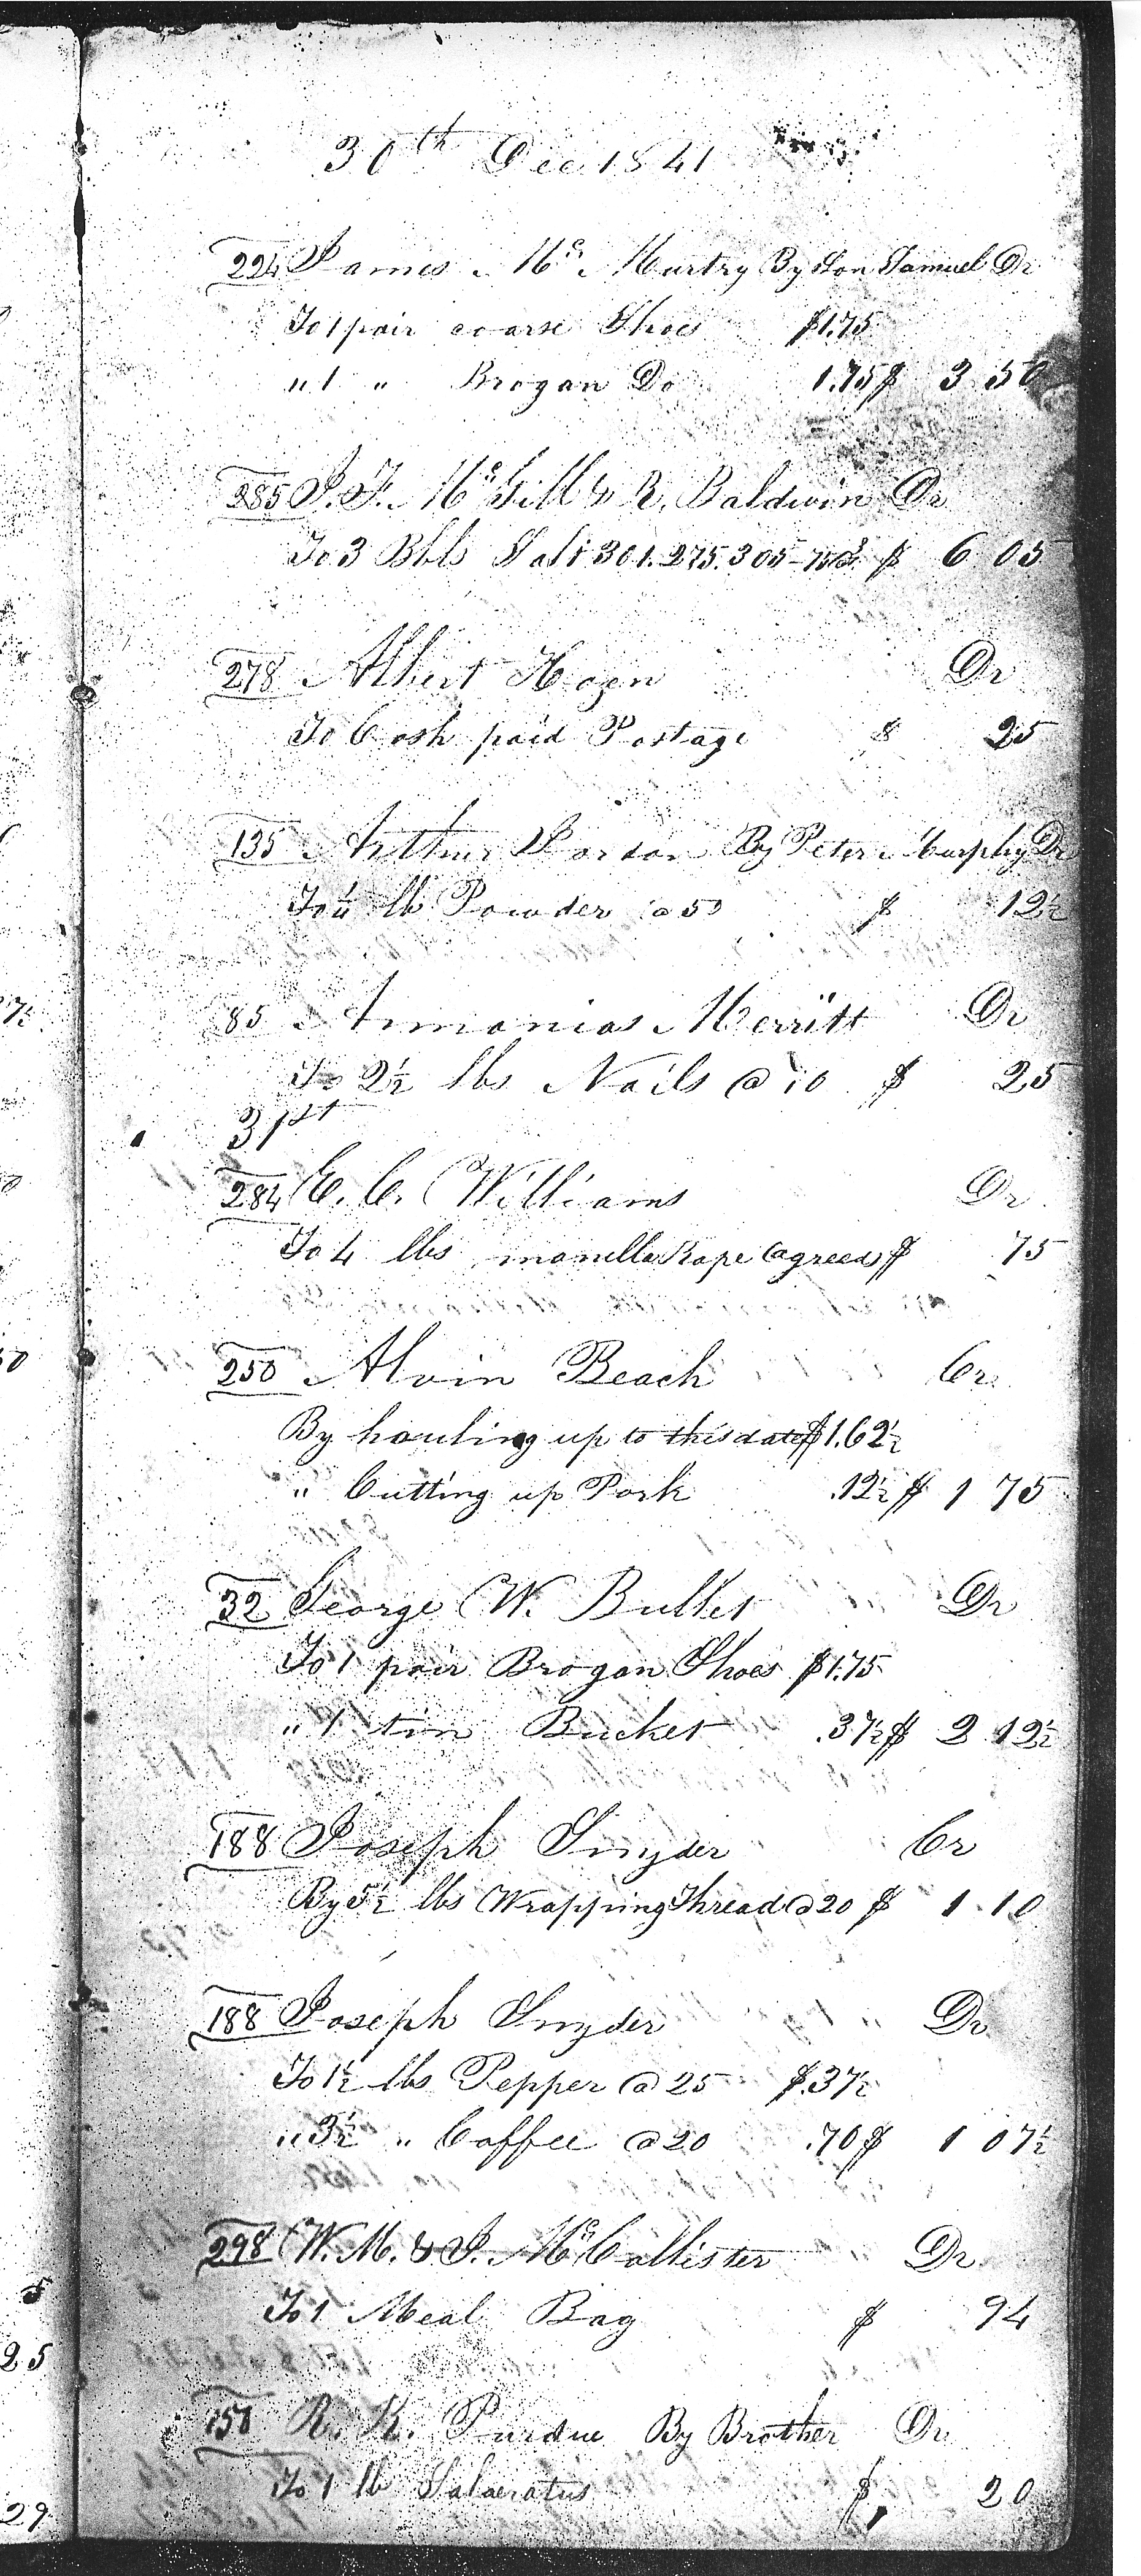 30th Dec 1841
224 James McMurtry By Son Samuel Dr
To 1 pair coarse Shoes $1.75
" 1 " Brogan Do 1.75 $ 3 50
285 J. F. McGill & R. Baldwin Dr
To 3 Bbls Salt 301. 275. 305 - $ 6 05
278 Albert Hazen Dr
To Cash paid Postage $ 25
135 Arthur Pardon By Peter Murphy Dr
To ¼ lb Powder @ 50 $ 12½
85 Ammonias Merritt Dr
To 2½ lbs Nails @ 10 $ 25
31st
284 E. C. Williams Dr
To 4 lbs manella Rope (agreed) $ 75
250 Alvin Beach Cr
By hauling up to this date $1.62½
" Cutting up Pork .12½ $ 1 75
32 George W. Butler Dr
To 1 pair Brogan Shoes $1.75
" 1 tin Bucket .37½ $ 2 12½
188 Joseph Snyder Cr
By 5½ lbs Wrapping Thread @ 20 $ 1 10
188 Joseph Snyder Dr
To 1½ lbs Pepper @ 25 $.37½
" 3½ " Coffee @ 20 .70 $ 1 07½
298 W. M. & J. McCallister Dr
To 1 Meal Bag $ 94
150 R. K. Purdue By Brother Dr
To 1 lb Salaeratus $ 20
7½
5
25
29